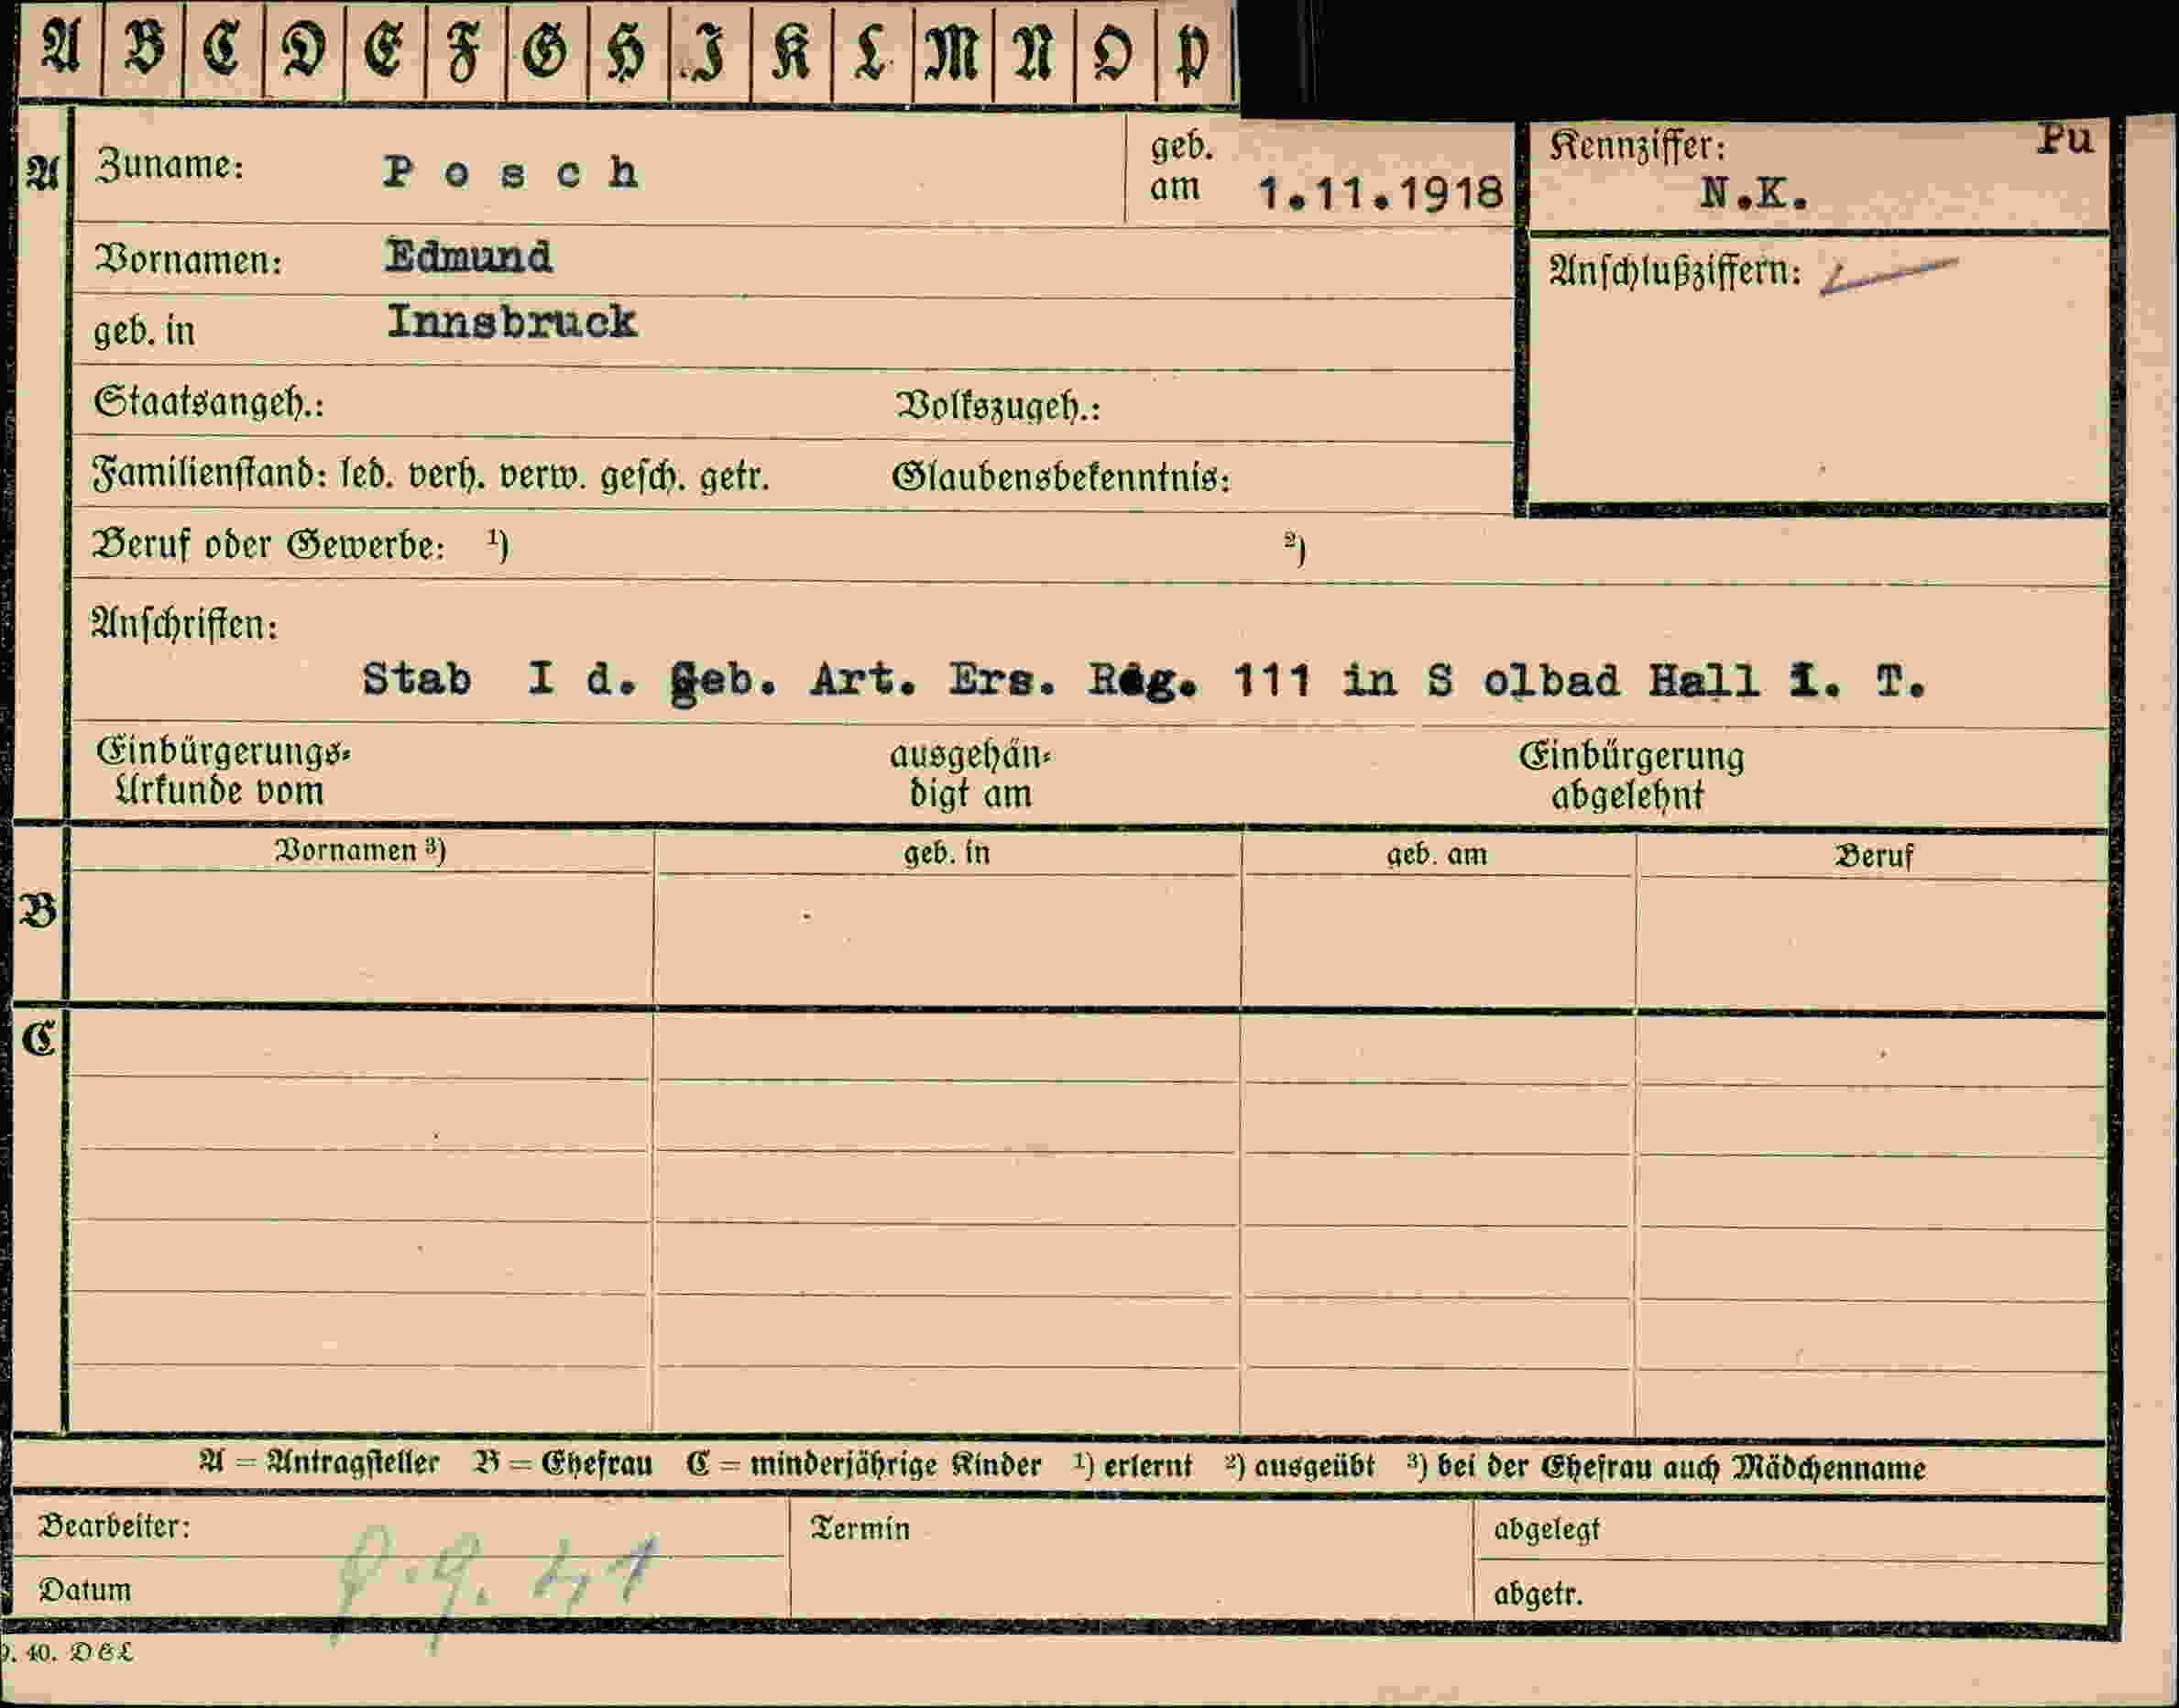 A B C D E F G H I K L M N O P
A Zuname: P o s c h geb. am 1.11.1918 Kennziffer: Pu
N.K.
Vornamen: Edmund Anschlußziffern:
geb. in Innsbruck
Staatsangeh.: Volkszugeh.:
Familienstand: led. verh. verw. gesch. getr. Glaubensbekenntnis:
Beruf oder Gewerbe: 1) 2)
Anschriften:
Stab I d. Geb. Art. Ers. Reg. 111 in S olbad Hall i. T.
Einbürgerungs- ausgehän- Einbürgerung
Urkunde vom digt am abgelehnt
Vornamen 3) geb. in geb. am Beruf
B
C
A = Antragsteller B = Ehefrau C = minderjährige Kinder 1) erlernt 2) ausgeübt 3) bei der Ehefrau auch Mädchenname
Bearbeiter: Termin abgelegt
Datum 8.9.41 abgetr.
9. 40. DEL